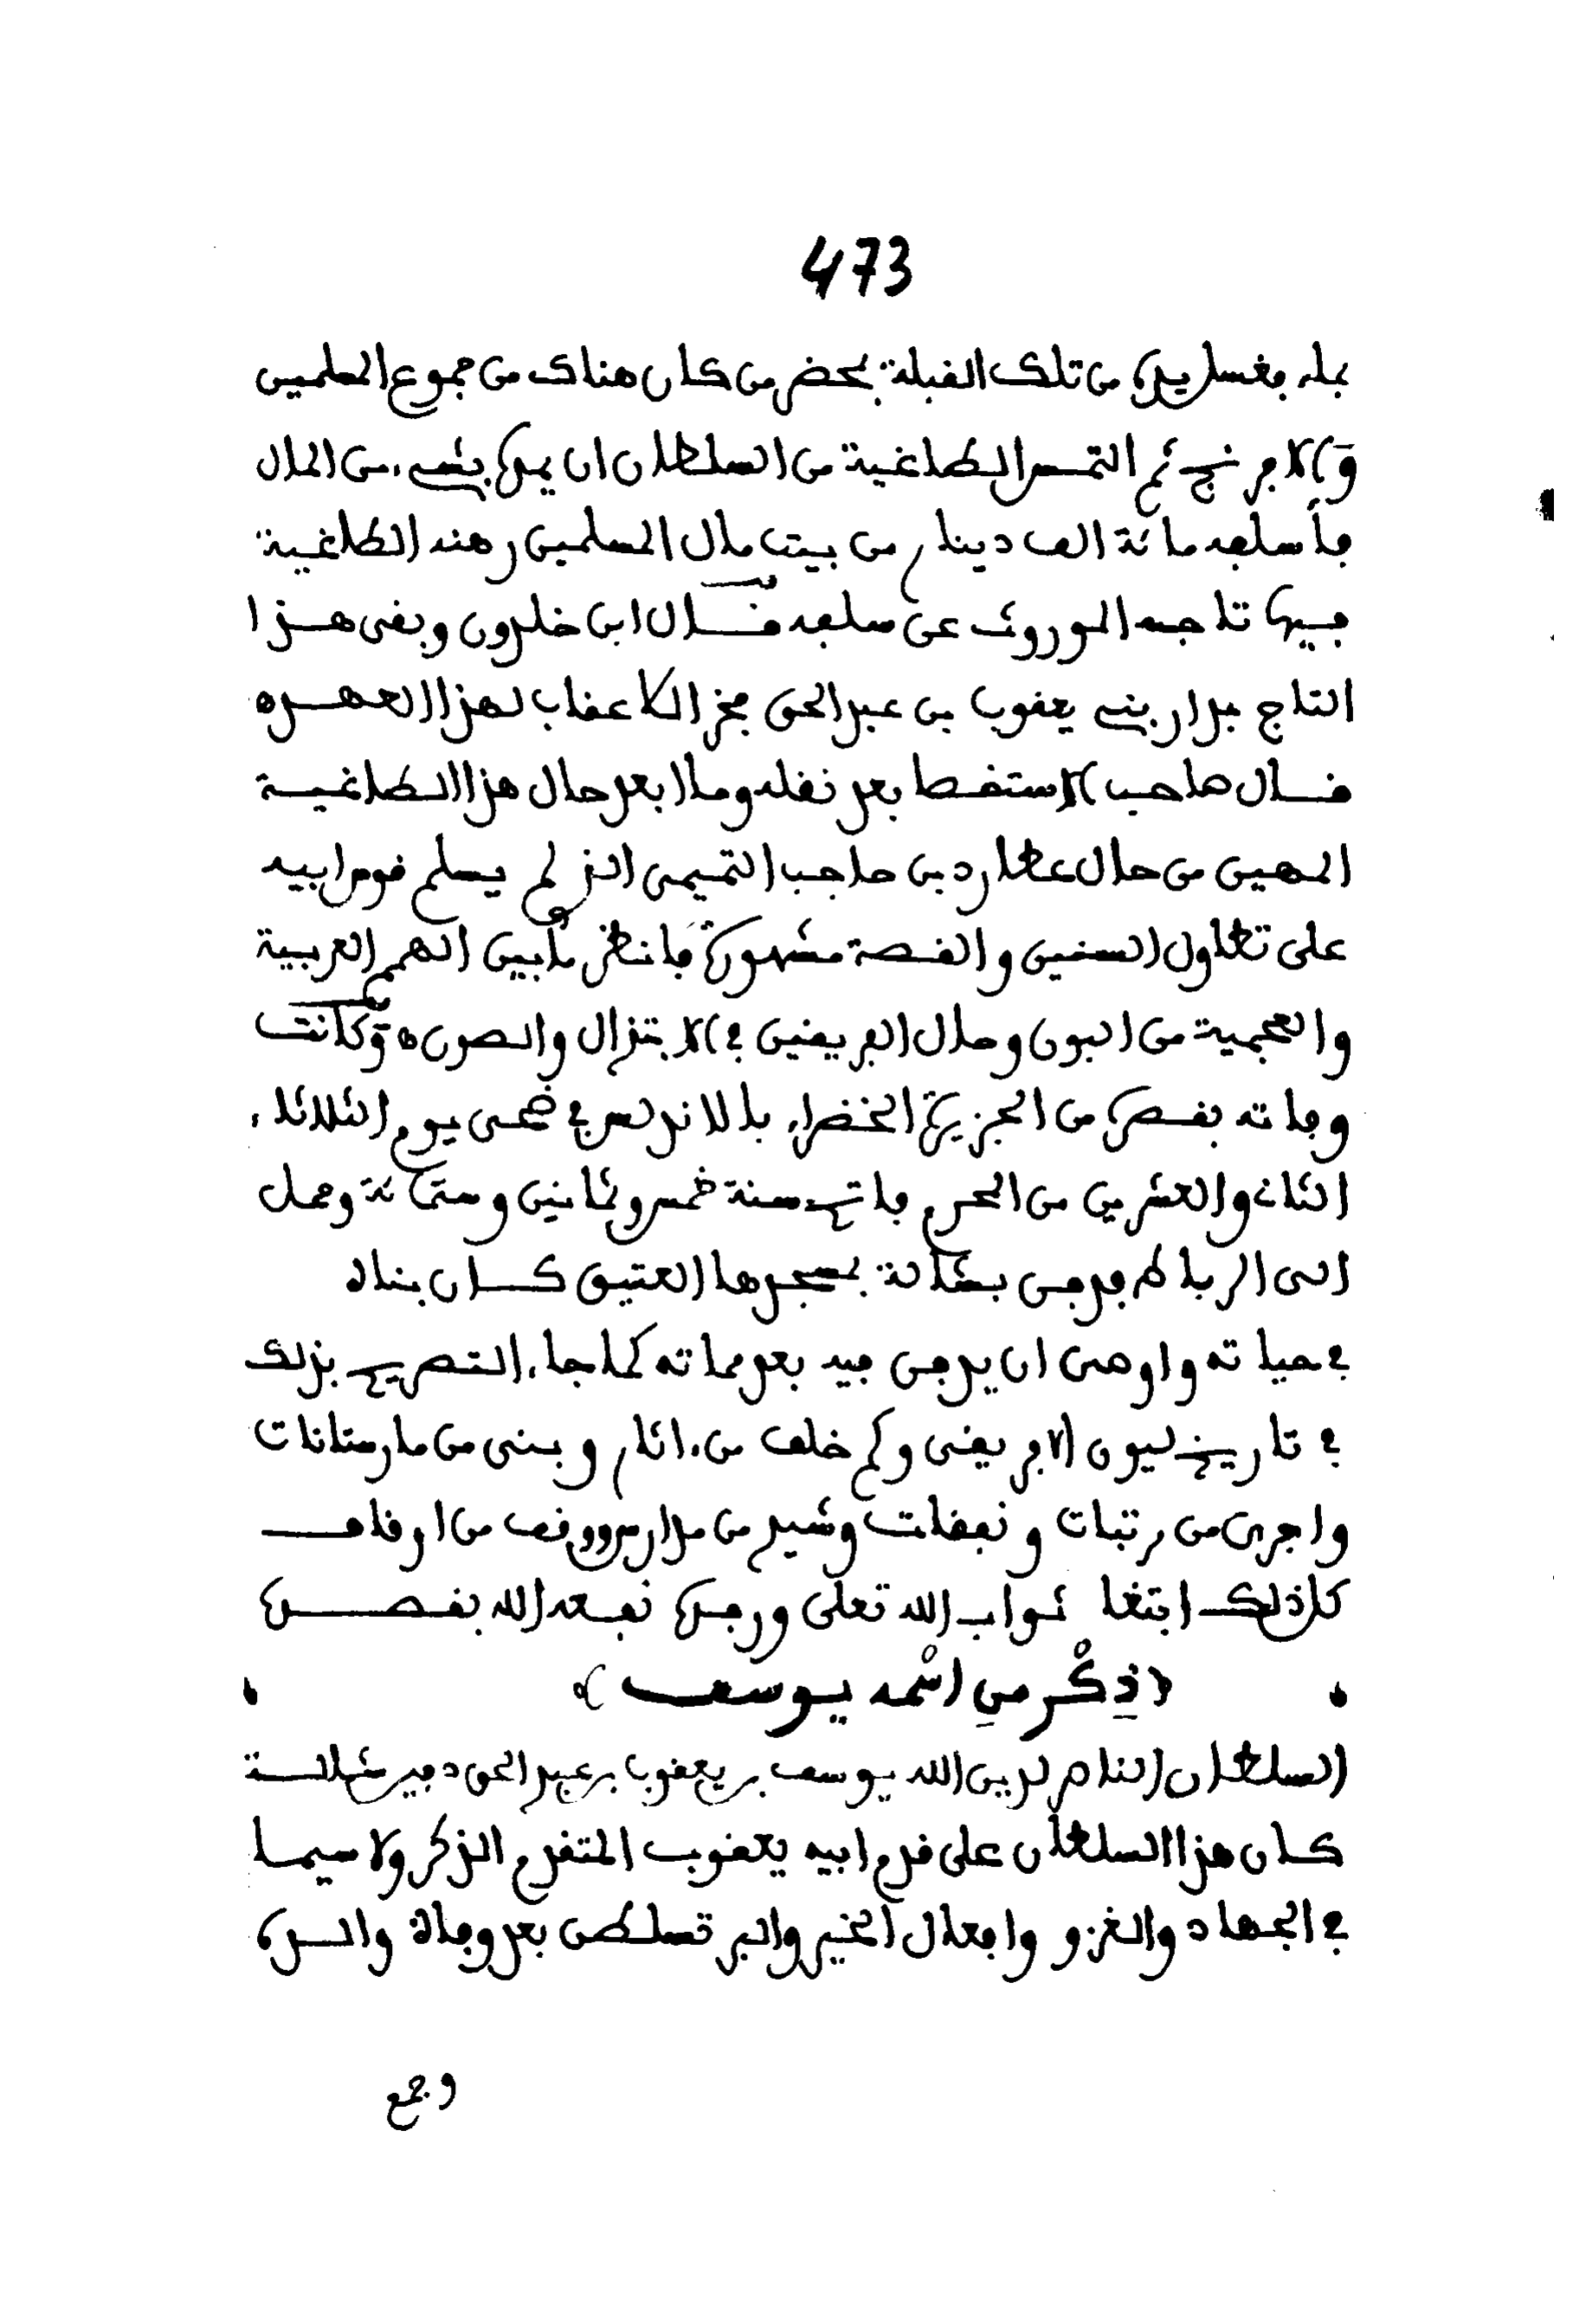 473
بماء فغسل يده من تلك القبلة بمحضر من كان هناك من جموع المسلمين
والافرنج ثم التمس الطاغية من السلطان ان يمده بشيء من المال
فأسلفه مائة الف دينار من بيت مال المسلمين رهنه الطاغية
فيها تاجه الموروث عن سلفه قال ابن خلدون وبقى هذا
التاج بدار بني يعقوب بن عبد الحق فخر الاعقاب لهذا العهد ه
قال صاحب الاستقصا بعد نقله وما ابعد حال هذا الطاغية
المهين من حال عطارد بن حاجب التميمي الذي لم يسلم قوس ابيه
على تطاول السنين والقصة مشهورة فانظر ما بين الهمم العربية
والعجمية من البون وحال الفريقين في الابتذال والصون ه وكانت
وفاته بقصره من الجزيرة الخضراء بالاندلس في ضحى يوم الثلاثاء
الثاني والعشرين من المحرم فاتح سنة خمس وثمانين وستمائة وحمل
الى الرباط فدفن بشالة بمسجدها العتيق كان بناه
في حياته واوصى ان يدفن فيه بعد مماته كما جاء التصريح بذلك
في تاريخ ليون الافريقي وكم خلف من ءاثار وبنى من مارستانات
واجرى من مرتبات ونفقات وشيد من مدارس ووقف من اوقاف
كل ذلك ابتغا ثواب الله تعلى ورجه نفعه الله بقصده
﴿ذِكْر مَنِ اسْمه يوسف﴾
السلطان الناصر لدين الله يوسف بن يعقوب بن عبد الحق دفين شالة
كان هذا السلطان على قدم ابيه يعقوب المتقدم الذكر ولا سيما
في الجهاد والغزو وافعال الخير والبر تسلطن بعد وفاة والده
وجمع